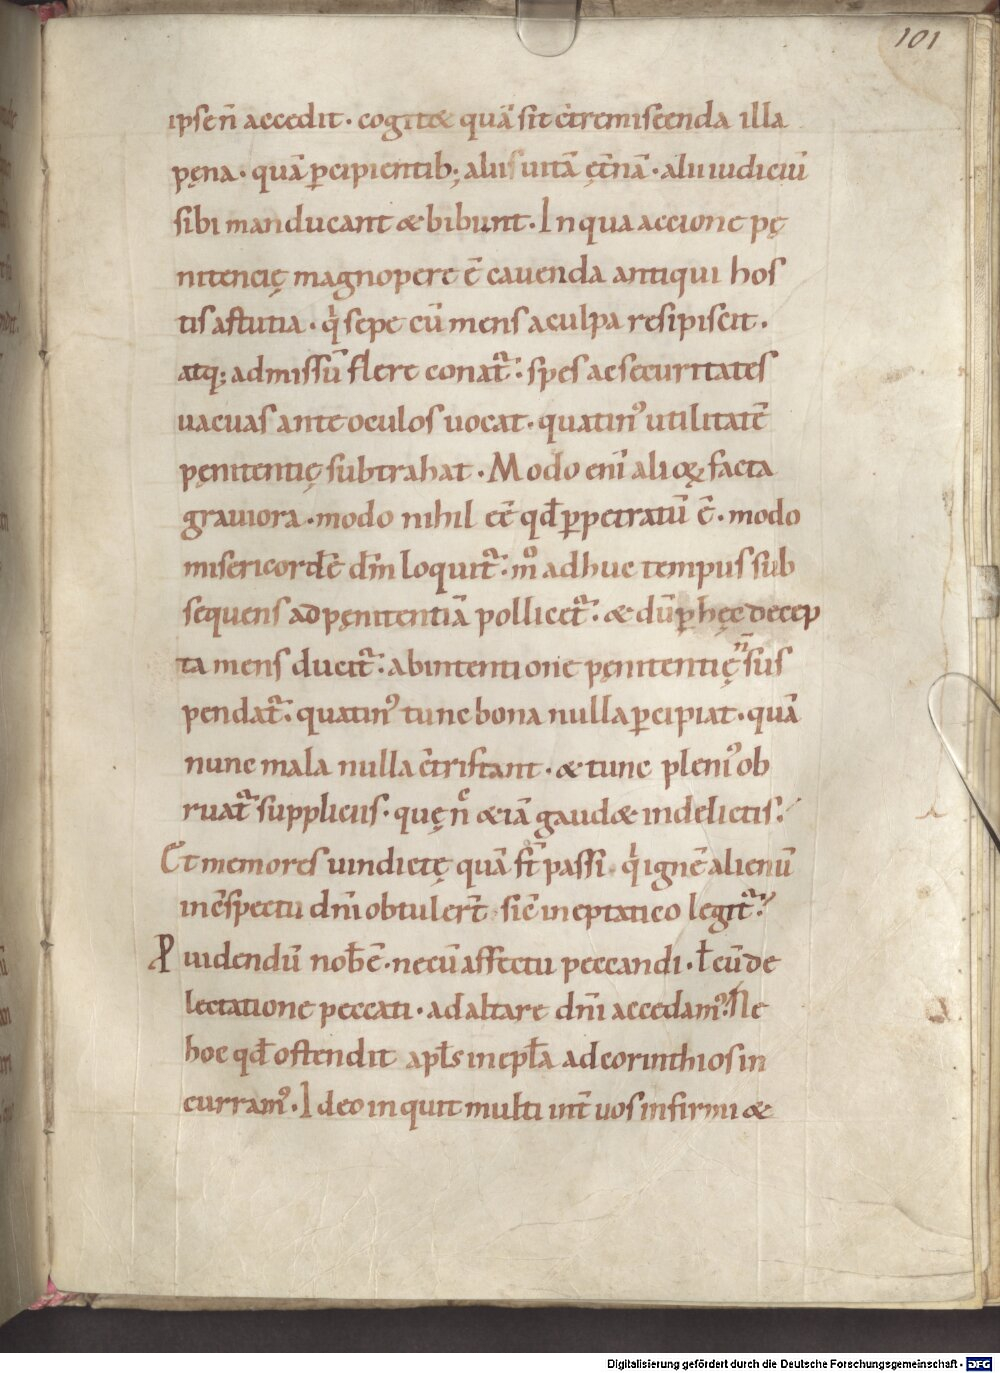 101
ipse n̄ accedit · cogitet quā sit c̄tremiscenda illa
pęna · quā ꝑcipientib; aliis uitā ęt̄nā · alii iudiciū
sibi manducant & bibunt · In qua accione pę
nitencię magnopere ē cauenda antiqui hos
tis astutia · q̇ sepe cū mens a culpa resipiscit ·
atq; admissū flere conat᷑ · spes ac securitates
uacuas ante oculos uocat · quatin᷒ utilitatē
pęnitentię subtrahat · Modo eni᷑ alioꝝ facta
grauiora · modo nihil eē qđ ꝑpetratū ē · modo
misericordē dm̄ loquit᷑ · m̊ adhuc tempus sub
sequens ad pęnitentiā pollicet᷑ · & dū ꝑ hęc decep
ta mens ducit᷑ · ab intentione pęnitentię n̄ sus
pendat᷑ · quatin᷒ tunc bona nulla ꝑcipiat · quā
nunc mala nulla c̄tristant · & tunc pleni᷒ ob
ruat᷑ suppliciis · quę n̄c &iā gaud& in delictis ·
Et memores uindictę quā st̄ passi · q̇ ignē alienū
in c̄spectu dn̄i obtuler̄t · sic̄ in eptatico legit᷑ ·
P uidendū nob̄ ē · ne cū affectu peccandi · ł cū de
lectatione peccati · ad altare dn̄i accedam᷒ · Ne
hoc qđ ostendit apłs in epła ad corinthios in
curram᷒ · Ideo inquit multi int̄ uos infirmi &
Digitalisierung gefördert durch die Deutsche Forschungsgemeinschaft - DFG